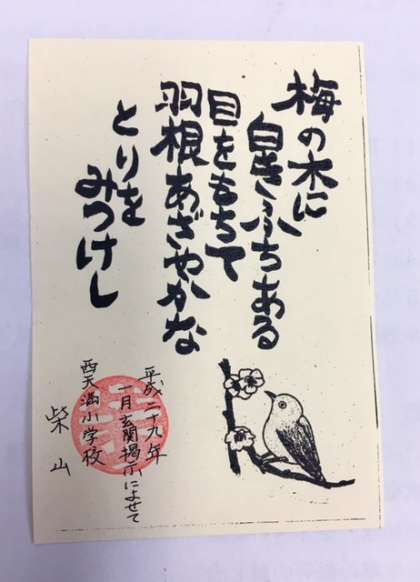 梅の木に
白きふちある
目をもちて
羽根あざやかな
とりを
みつけし
平成二十九年
一月玄関掲示によせて
西天満小学校
柴山